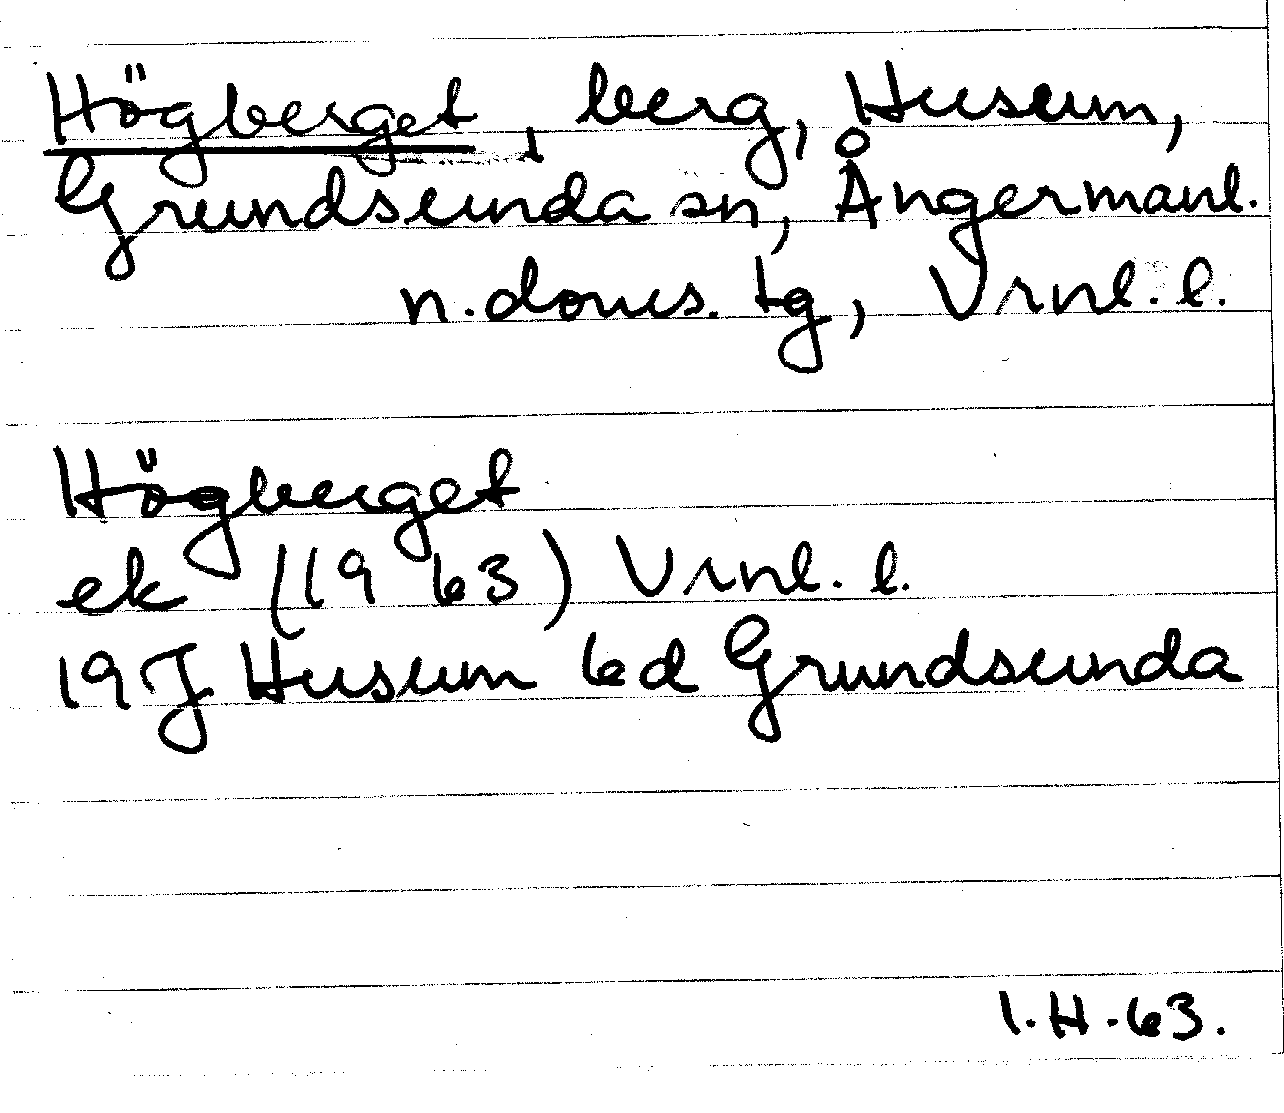 Högberget, berg, Husum,
Grundsunda sn, Ångermanl.
n. doms. tg, Vrnl. l.
Högberget
ek (1963) Vrnl. l.
19J Husum 6d Grundsunda
I.H.63.